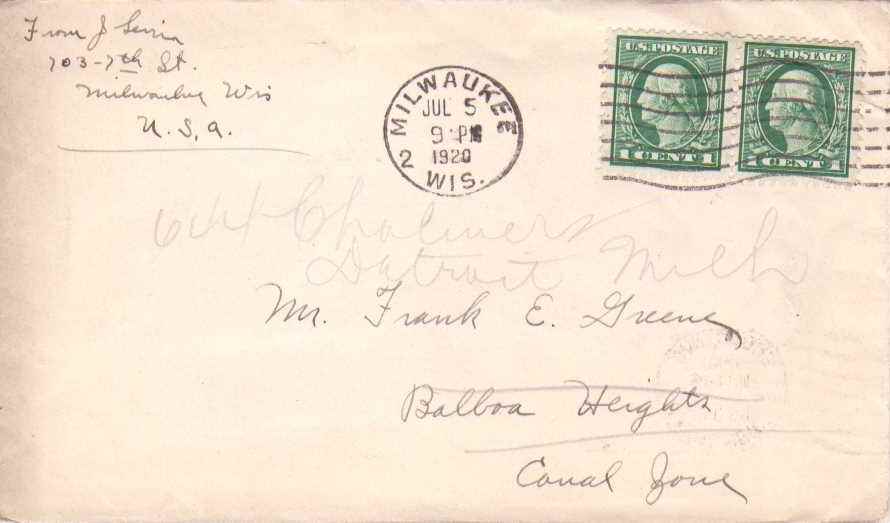 From J
703-7th St.
Milwaukee Wis
U.S.A.
MILWAUKEE
JUL 5
9 PM
1920
2
WIS.
U.S. POSTAGE
1 CENT 1
U.S. POSTAGE
1 CENT 1
Chalmers
Datroit Mich
Mr. Frank E. Greene
Balboa Heights
Canal Zone